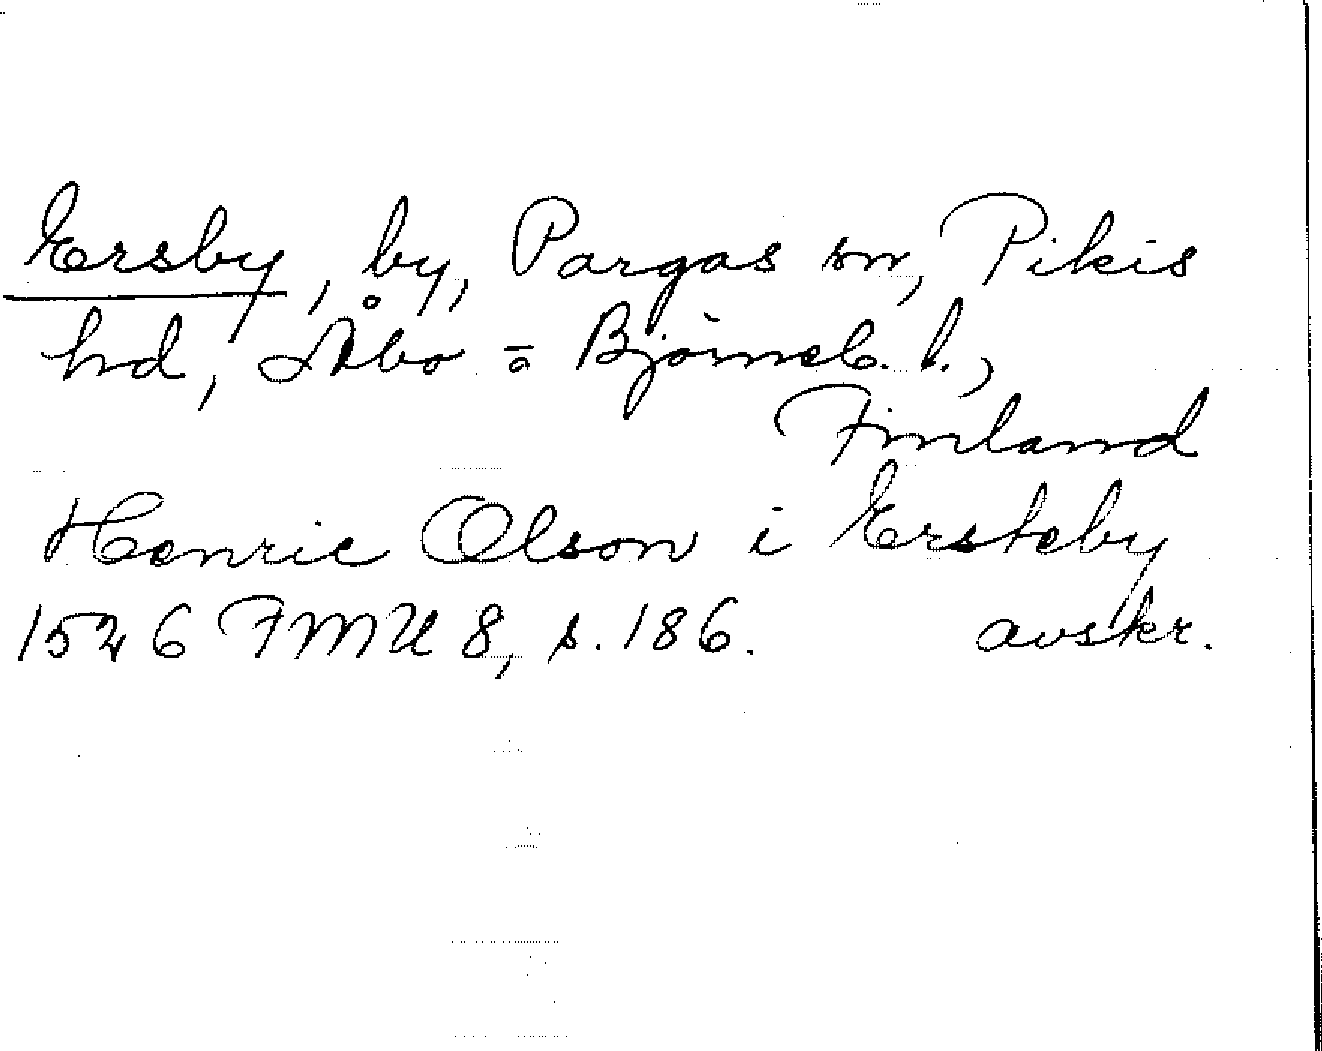 Ersby, by, Pargas sn, Pikis
hd, Åbo o Björneb. l.,
Finland
Henric Olson i Ersteby
1526 FMU 8, s. 186. avskr.